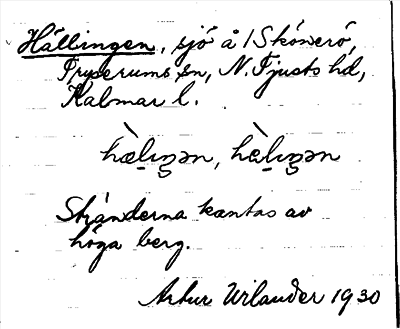 Hällingen, sjö å Skönerö,
Fryserums sn, N. Tjusts hd,
Kalmar l.
hæ̀lıŋən, hɛ̀lıŋən
Stränderna kantas av
höga berg.
Artur Wilander 1930